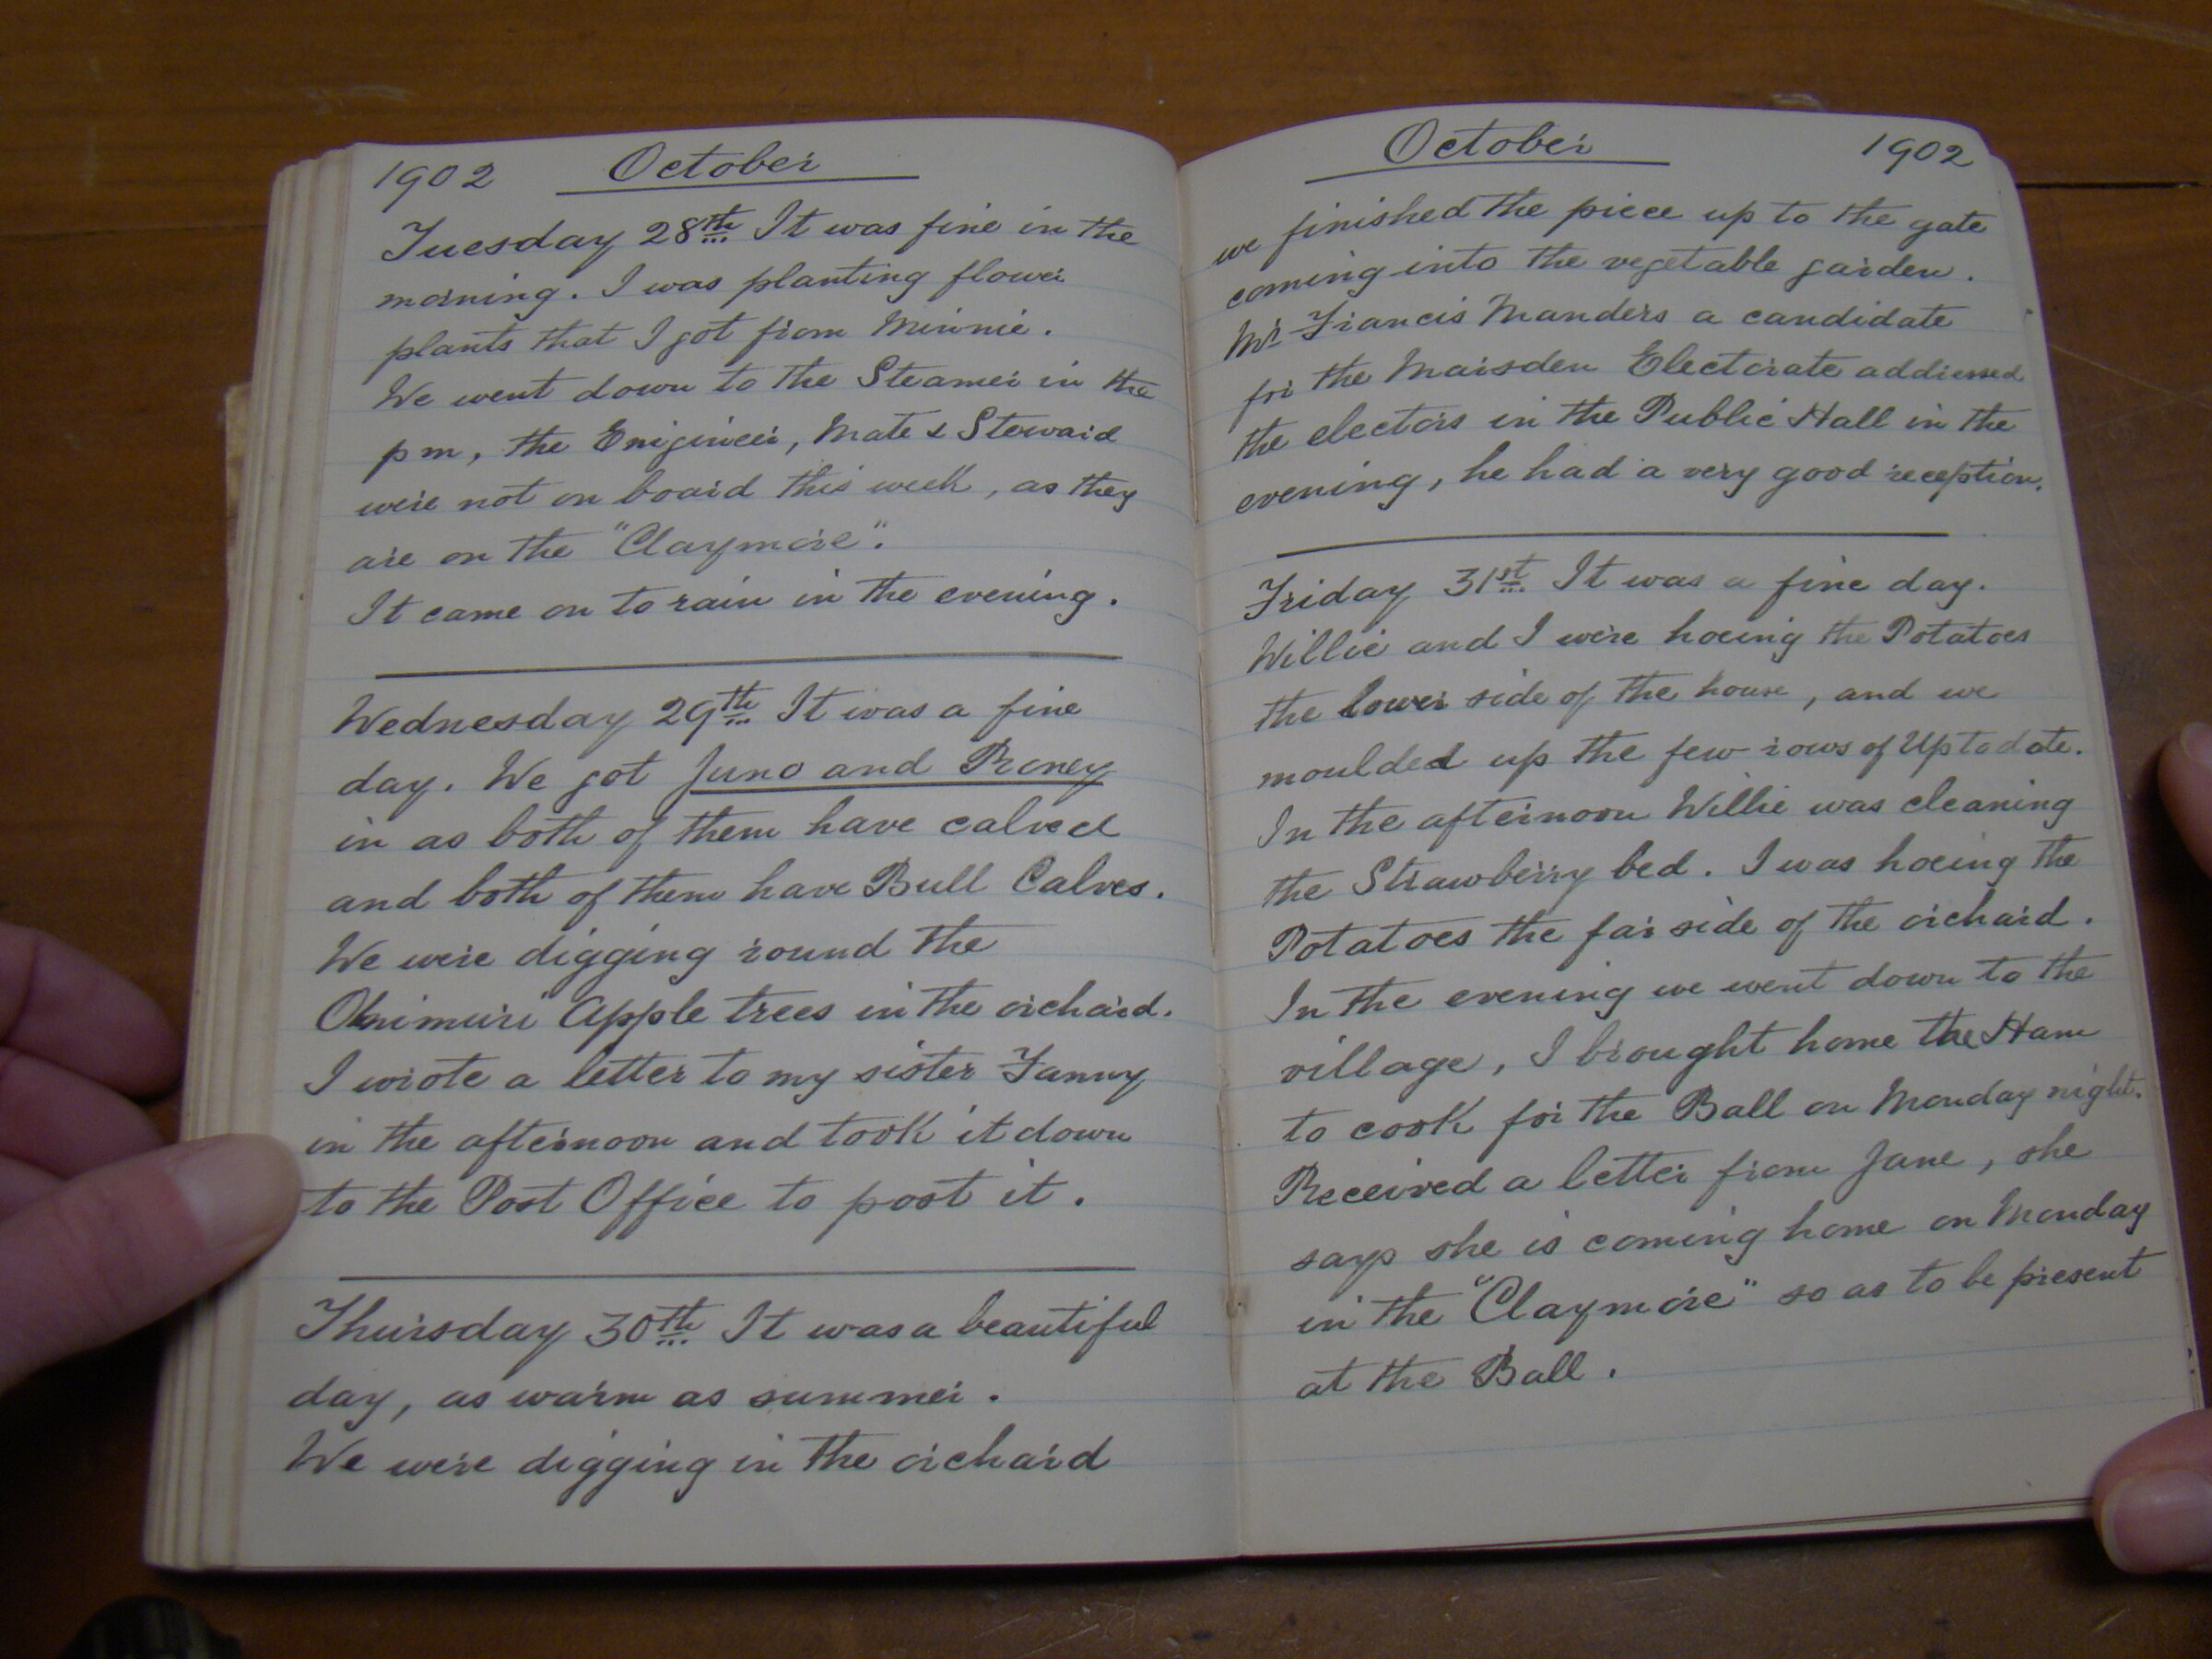 1902 October
Tuesday 28th It was fine in the
morning. I was planting flower
plants that I got from Minnie.
We went down to the Steamer in the
p m, the Engineer, Mate & Steward
were not on board this week, as they
are on the "Claymore".
It came on to rain in the evening.
Wednesday 29th It was a fine
day. We got Juno and Roney
in as both of them have calved
and both of them have Bull Calves.
We were digging round the
Apple trees in the orchard.
I wrote a letter to my sister Fanny
in the afternoon and took it down
to the Post Office to post it.
Thursday 30th It was a beautiful
day, as warm as summer.
We were digging in the orchard
October 1902
we finished the piece up to the gate
coming into the vegetable garden.
Mr Francis Manders a candidate
for the Marsden Electorate addressed
the electors in the Public Hall in the
evening, he had a very good reception.
Friday 31st It was a fine day.
Willie and I were hoeing the Potatoes
the lower side of the house, and we
moulded up the few rows of Up to date.
In the afternoon Willie was cleaning
the Strawberry bed. I was hoeing the
Potatoes the far side of the orchard.
In the evening we went down to the
village, I brought home the Ham
to cook for the Ball on Monday night.
Received a letter from Jane, she
says she is coming home on Monday
in the "Claymore" so as to be present
at the Ball.